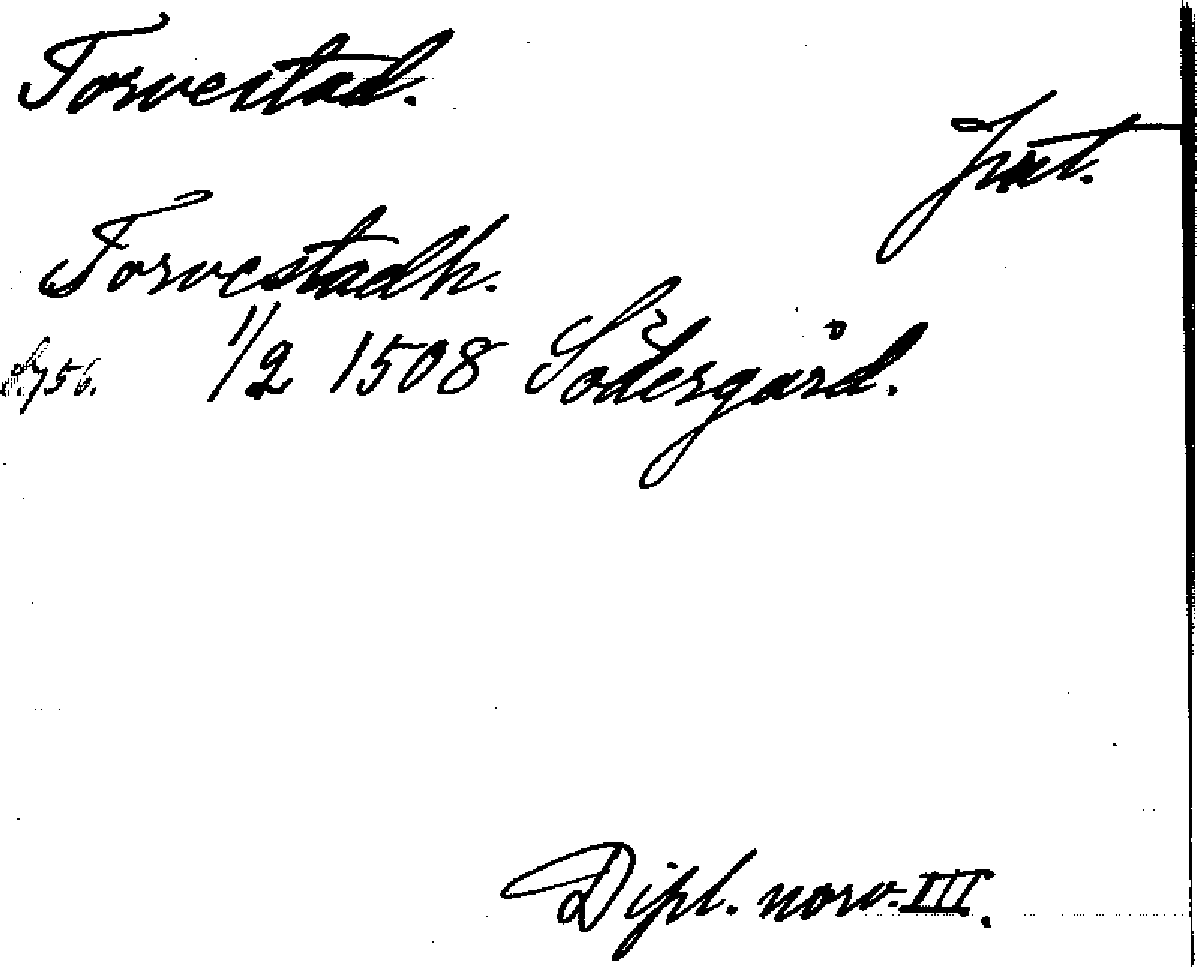 Torvestad.
Torvestadh.
S. 756. 1/2 1508 Södergård.
Dipl. norv. III.